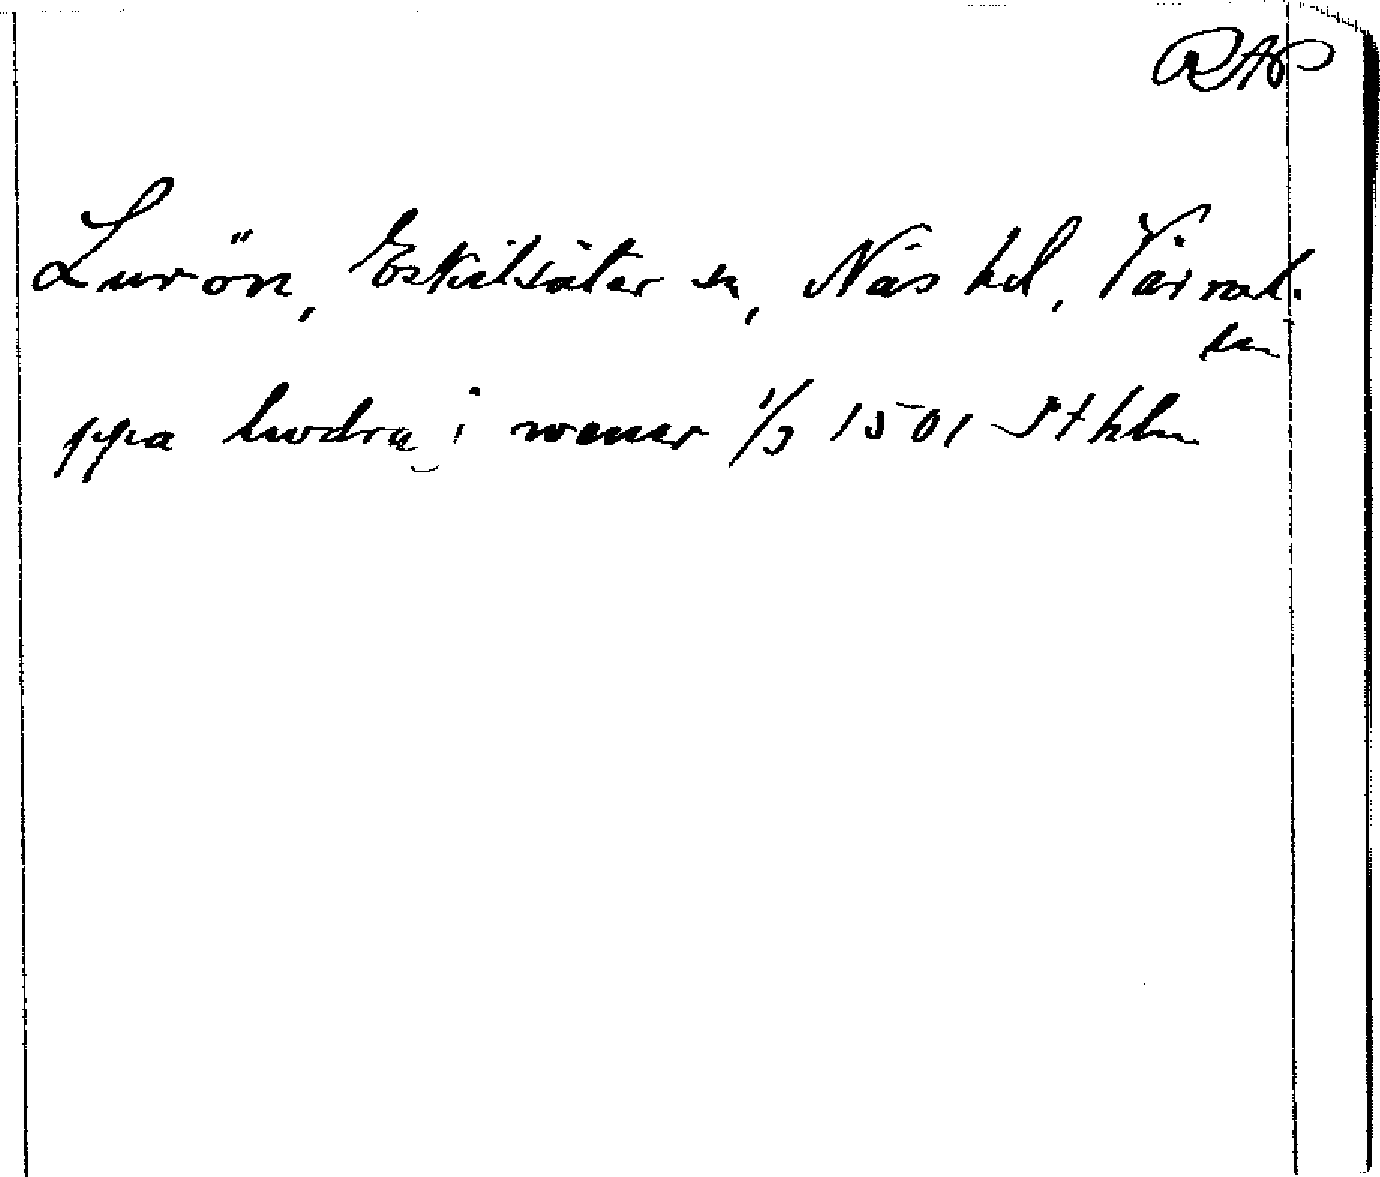 RAP
Lurön, Eskilsäter sn, Näs hd, Värml.
ln
ppa lwdrø i wener 1/3 1501 Sthlm